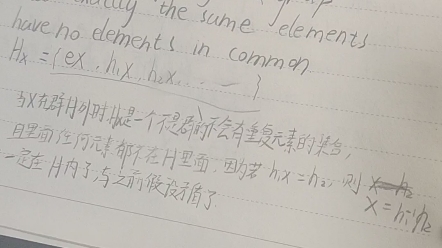 the same elements
have no elements in common
Hx = {ex, h₁x, h₂x, ... }
当X在群H外时,Hx是一个不是群的不会有重复元素的集合,
且里面任何元素都不在H里面.因为若 h₁x = h₂, 则 x = h₁⁻¹h₂
一定在H内了,与之前假设矛盾了